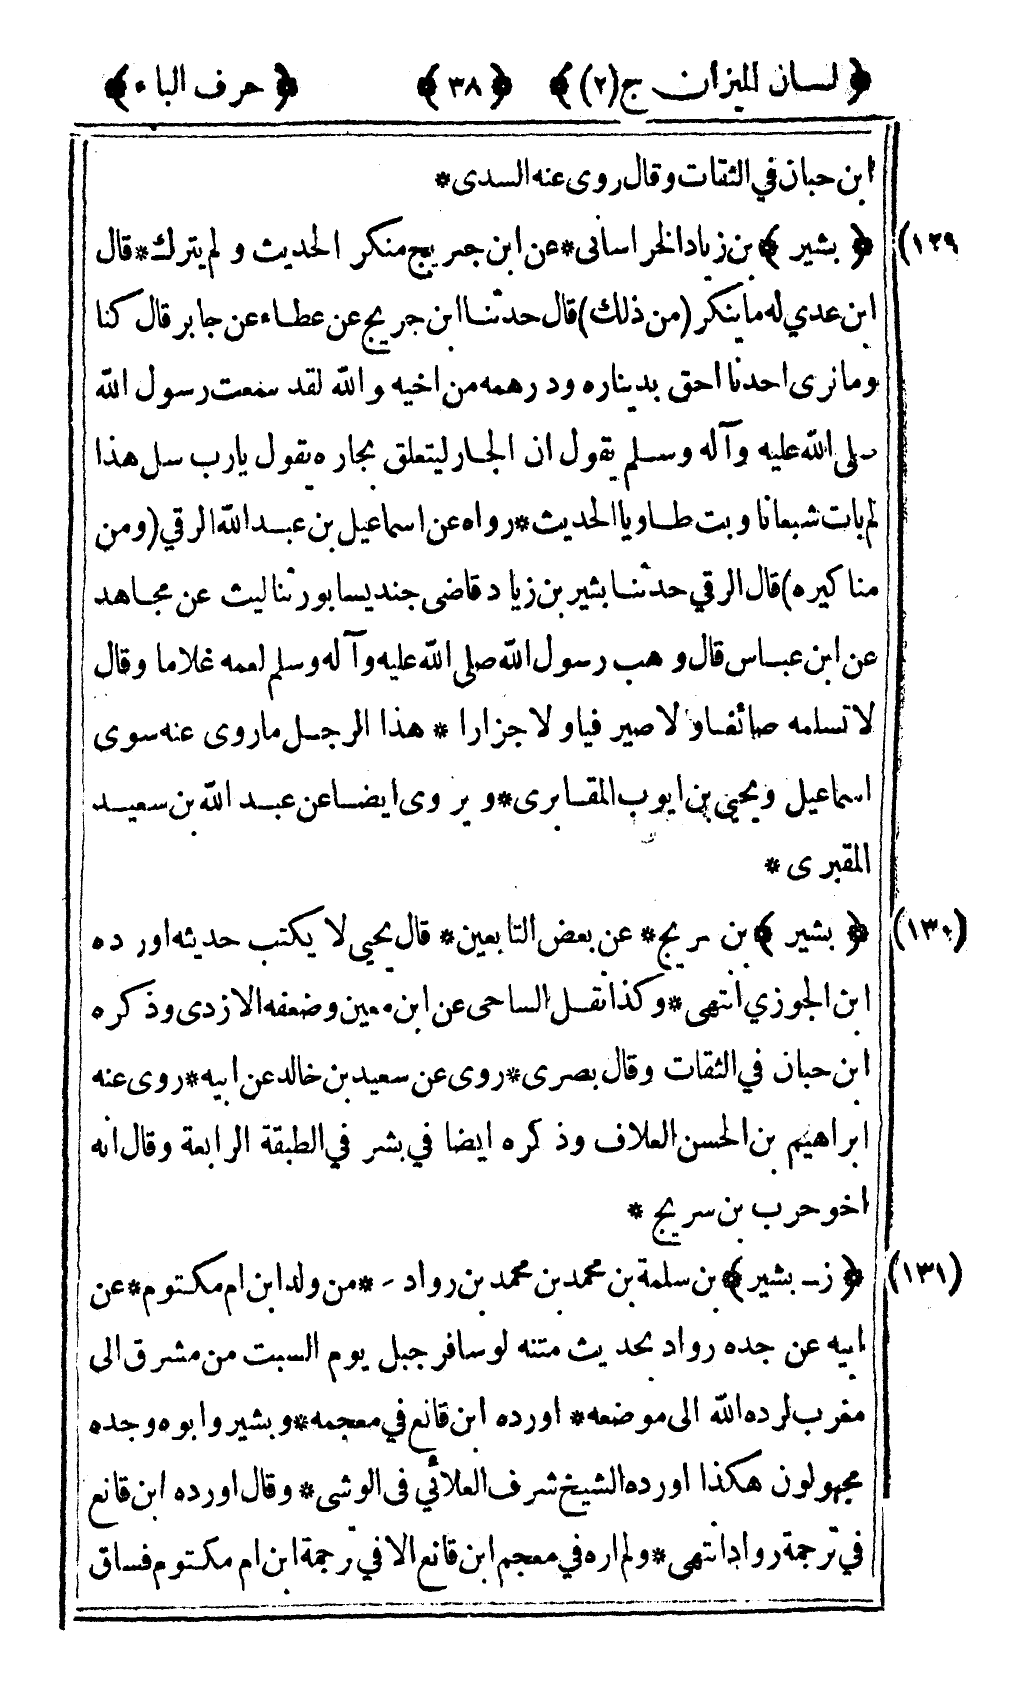 ﴿ لسان الميزان ج(٢) ﴾ ﴿ ٣٨ ﴾ ﴿ حرف الباء ﴾
ابن حبان في الثقات وقال روى عنه السدى*
(١٢٩) ﴿ بشير ﴾ بن زياد الخراسانى*عن ابن جريج منكر الحديث و لم يترك*قال
ابن عدي له ما ينكر (من ذلك) قال حدثنا ابن جريج عن عطاء عن جابر قال كنا
وما نرى احدنا احق بديناره ودرهمه من اخيه والله لقد سمعت رسول الله
صلى الله عليه وآله وسلم يقول ان الجار ليتعلق بجاره يقول يارب سل هذا
لم بات شبعانا وبت طاويا الحديث*رواه عن اسماعيل بن عبد الله الرقي (ومن
مناكيره) قال الرقي حدثنا بشير بن زياد قاضى جنديسابور ثنا ليث عن مجاهد
عن ابن عباس قال وهب رسول الله صلى الله عليه وآله وسلم لعمه غلاما وقال
لا تسلمه صائغا ولا صيرفيا ولا جزارا * هذا الرجل ماروى عنه سوى
اسماعيل ويحيى بن ايوب المقابرى*ويروى ايضا عن عبد الله بن سعيد
المقبرى *
(١٣٠) ﴿ بشير ﴾ بن سريج* عن بعض التابعين* قال يحيى لا يكتب حديثه اورده
ابن الجوزي انتهى*وكذا نقل الساجى عن ابن معين وضعفه الازدى وذكره
ابن حبان في الثقات وقال بصرى*روى عن سعيد بن خالد عن ابيه*روى عنه
ابراهيم بن الحسن العلاف وذكره ايضا في بشر في الطبقة الرابعة وقال انه
اخو حرب بن سريج *
(١٣١) ﴿ ز- بشير ﴾ بن سلمة بن محمد بن محمد بن رواد - *من ولد ابن ام مكتوم*عن
ابيه عن جده رواد بحديث متنه لو سافر جبل يوم السبت من مشرق الى
مغرب لرده الله الى موضعه* اورده ابن قانع في معجمه*وبشير وابوه وجده
مجهولون هكذا اورده الشيخ شرف العلائي فى الوشى* وقال اورده ابن قانع
في ترجمة رواد انتهى*ولم اره في معجم ابن قانع الا في ترجمة ابن ام مكتوم فساق